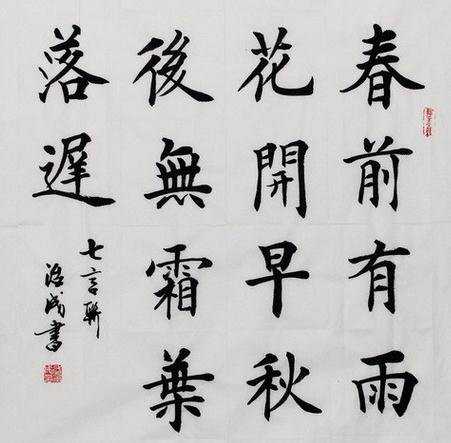 春前有雨
花開早秋
後無霜葉
落遲
七言聯
浩成書